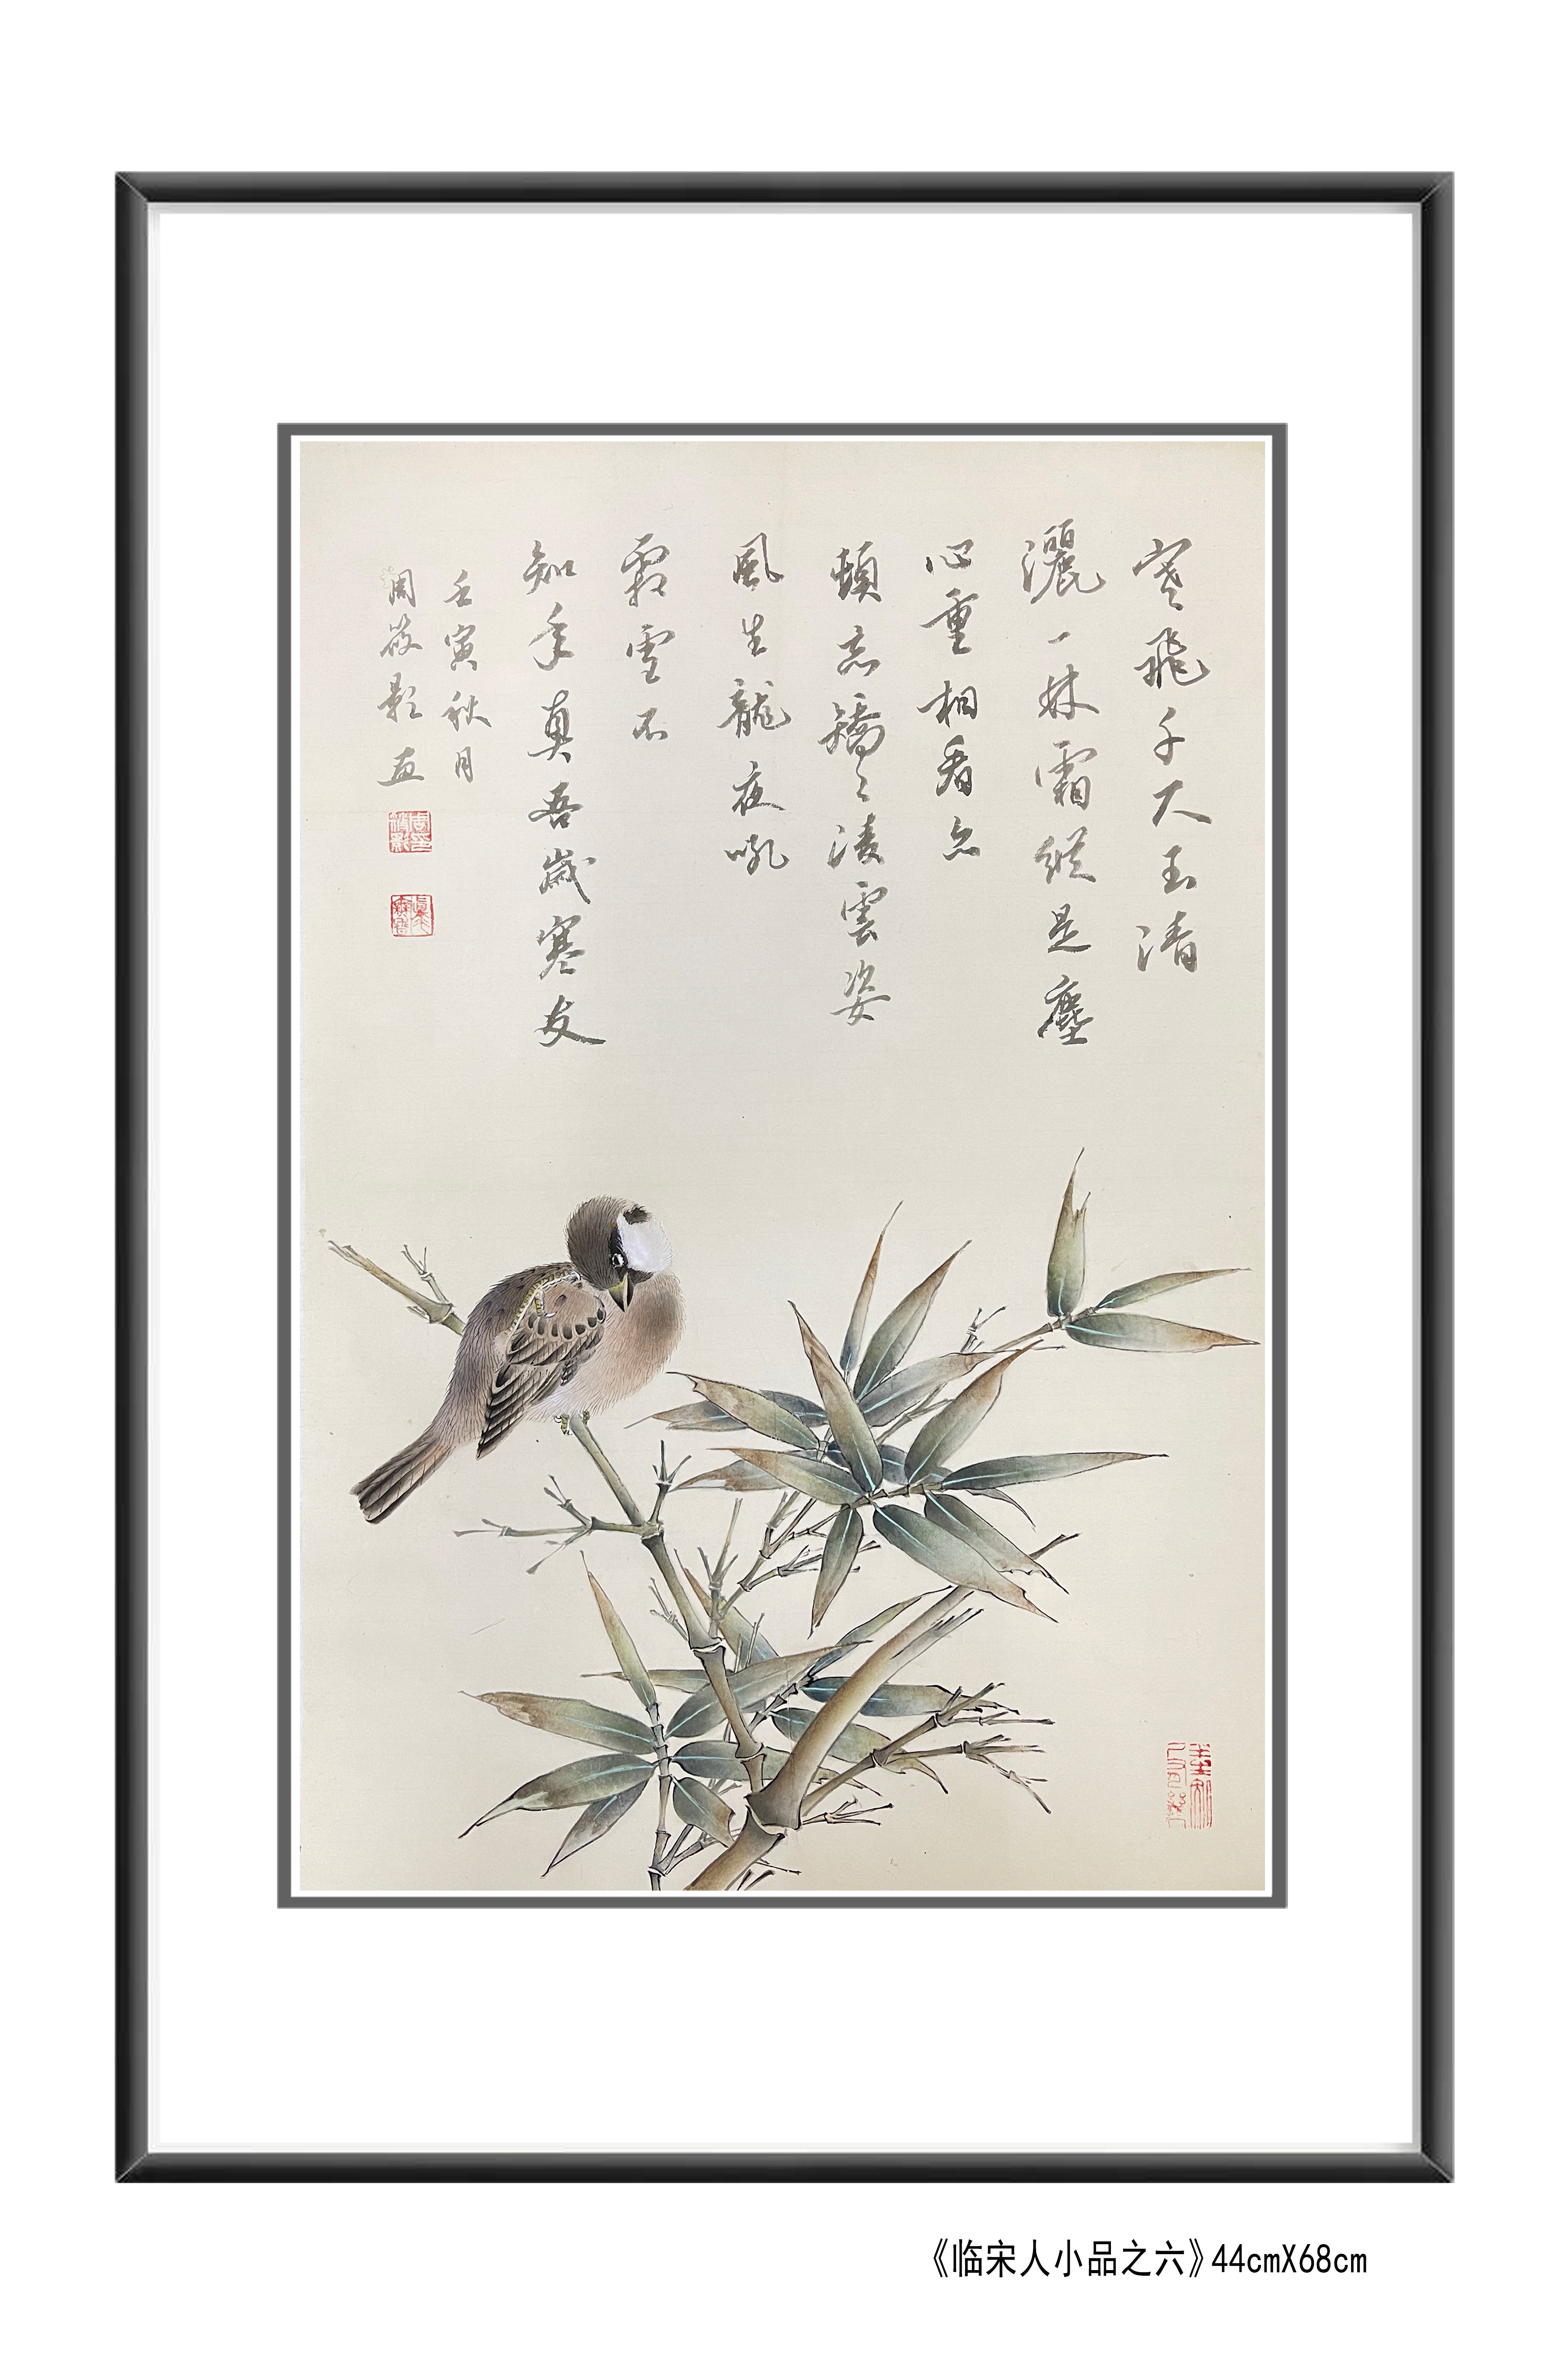 寒飛千尺玉清
灑一林霜縱是塵
心重相看亦
頓忘矯〻凌雲姿
風生龍夜吼
霜雪不
知年真吾歲寒友
壬寅秋月
周筱影画
《临宋人小品之六》44cmX68cm